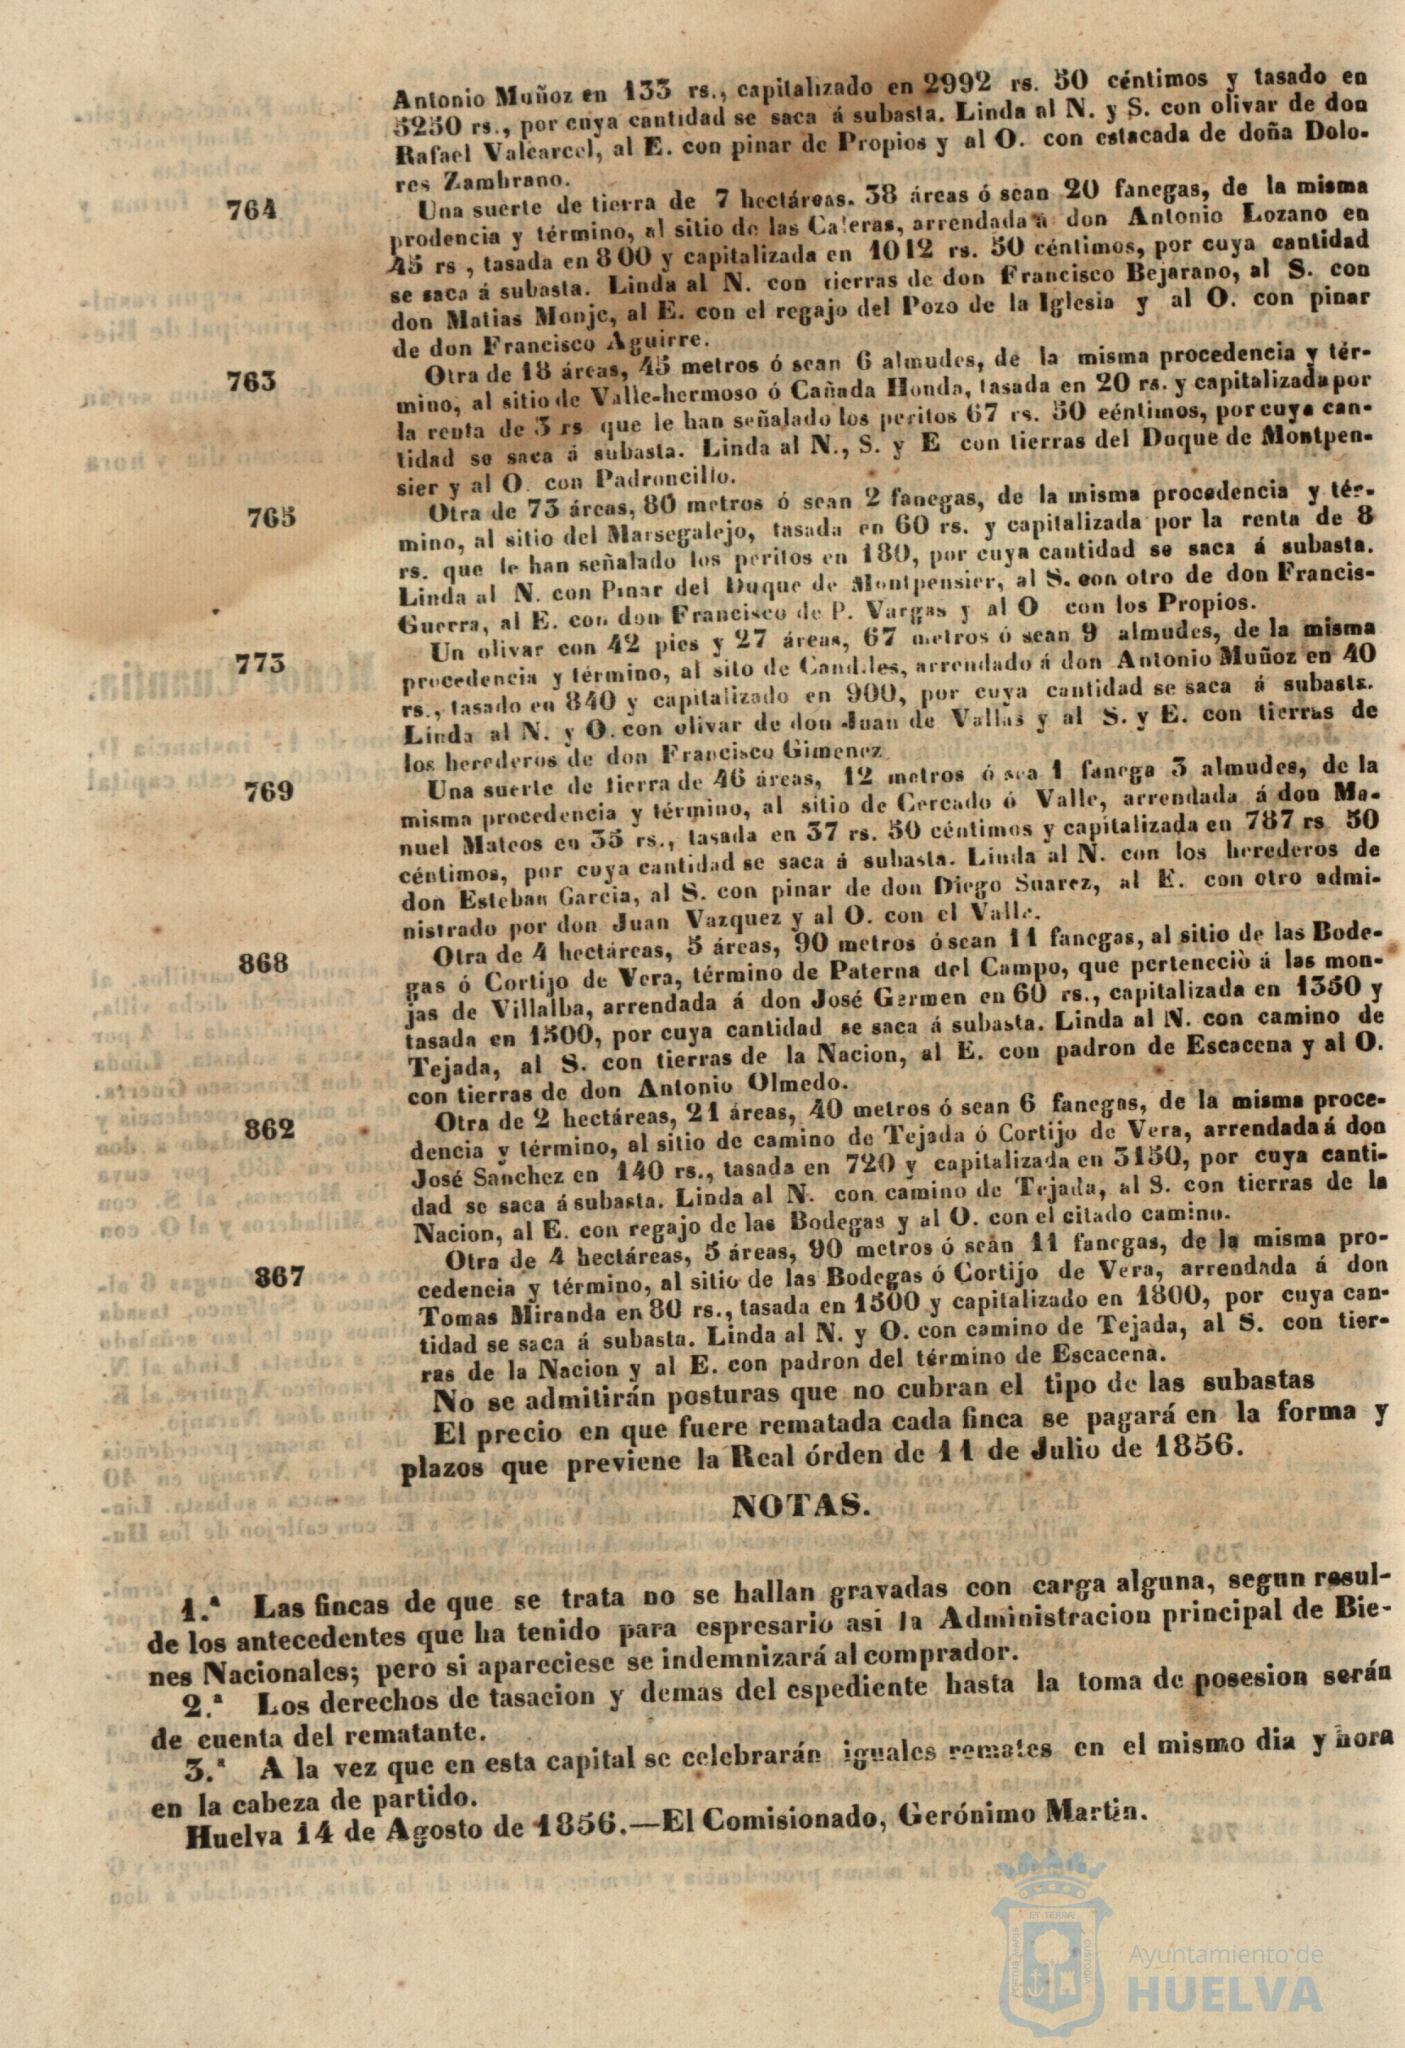 Antonio Muñoz en 133 rs., capitalizado en 2992 rs. 50 céntimos y tasado en
5250 rs., por cuya cantidad se saca á subasta. Linda al N. y S. con olivar de don
Rafael Valcarcel, al E. con pinar de Propios y al O. con estacada de doña Dolo-
res Zambrano.
764 Una suerte de tierra de 7 hectáreas. 38 áreas ó sean 20 fanegas, de la misma
prodencia y término, al sitio de las Caleras, arrendada á don Antonio Lozano en
45 rs , tasada en 800 y capitalizada en 1012 rs. 50 céntimos, por cuya cantidad
se saca á subasta. Linda al N. con tierras de don Francisco Bejarano, al S. con
don Matias Monje, al E. con el regajo del Pozo de la Iglesia y al O. con pinar
de don Francisco Aguirre.
763 Otra de 18 áreas, 45 metros ó sean 6 almudes, de la misma procedencia y tér-
mino, al sitio de Valle-hermoso ó Cañada Honda, tasada en 20 rs. y capitalizada por
la renta de 3 rs que le han señalado los peritos 67 rs. 50 céntimos, por cuya can-
tidad se saca á subasta. Linda al N., S. y E con tierras del Duque de Montpen-
sier y al O. con Padroncillo.
765 Otra de 73 áreas, 80 metros ó sean 2 fanegas, de la misma procedencia y tér-
mino, al sitio del Marsegalejo, tasada en 60 rs. y capitalizada por la renta de 8
rs. que le han señalado los peritos en 180, por cuya cantidad se saca á subasta.
Linda al N. con Pinar del Duque de Montpensier, al S. con otro de don Francis-
Guerra, al E. con don Francisco de P. Vargas y al O con los Propios.
773 Un olivar con 42 pies y 27 áreas, 67 metros ó sean 9 almudes, de la misma
procedencia y término, al sito de Candiles, arrendado á don Antonio Muñoz en 40
rs., tasado en 840 y capitalizado en 900, por cuya cantidad se saca á subasta.
Linda al N. y O. con olivar de don Juan de Vallas y al S. y E. con tierras de
los herederos de don Francisco Gimenez
769 Una suerte de tierra de 46 áreas, 12 metros ó sea 1 fanega 3 almudes, de la
misma procedencia y término, al sitio de Cercado ó Valle, arrendada á don Ma-
nuel Mateos en 35 rs., tasada en 37 rs. 50 céntimos y capitalizada en 787 rs 50
céntimos, por cuya cantidad se saca á subasta. Linda al N. con los herederos de
don Esteban Garcia, al S. con pinar de don Diego Suarez, al E. con otro admi-
nistrado por don Juan Vazquez y al O. con el Valle.
868 Otra de 4 hectáreas, 5 áreas, 90 metros ó sean 11 fanegas, al sitio de las Bode-
gas ó Cortijo de Vera, término de Paterna del Campo, que perteneciò á las mon-
jas de Villalba, arrendada á don José Germen en 60 rs., capitalizada en 1350 y
tasada en 1500, por cuya cantidad se saca á subasta. Linda al N. con camino de
Tejada, al S. con tierras de la Nacion, al E. con padron de Escacena y al O.
con tierras de don Antonio Olmedo.
862 Otra de 2 hectáreas, 21 áreas, 40 metros ó sean 6 fanegas, de la misma proce-
dencia y término, al sitio de camino de Tejada ó Cortijo de Vera, arrendada á don
José Sanchez en 140 rs., tasada en 720 y capitalizada en 3150, por cuya canti-
dad se saca á subasta. Linda al N. con camino de Tejada, al S. con tierras de la
Nacion, al E. con regajo de las Bodegas y al O. con el citado camino.
867 Otra de 4 hectáreas, 5 áreas, 90 metros ó sean 11 fanegas, de la misma pro-
cedencia y término, al sitio de las Bodegas ó Cortijo de Vera, arrendada á don
Tomas Miranda en 80 rs., tasada en 1500 y capitalizado en 1800, por cuya can-
tidad se saca á subasta. Linda al N. y O. con camino de Tejada, al S. con tier-
ras de la Nacion y al E. con padron del término de Escacena.
No se admitirán posturas que no cubran el tipo de las subastas
El precio en que fuere rematada cada finca se pagará en la forma y
plazos que previene la Real órden de 11 de Julio de 1856.
NOTAS.
1.ª Las fincas de que se trata no se hallan gravadas con carga alguna, segun resul-
de los antecedentes que ha tenido para espresarlo asi la Administracion principal de Bie-
nes Nacionales; pero si apareciese se indemnizará al comprador.
2.ª Los derechos de tasacion y demas del espediente hasta la toma de posesion serán
de cuenta del rematante.
3.ª A la vez que en esta capital se celebrarán iguales remates en el mismo dia y hora
en la cabeza de partido.
Huelva 14 de Agosto de 1856.—El Comisionado, Gerónimo Martin.
Ayuntamiento de
HUELVA